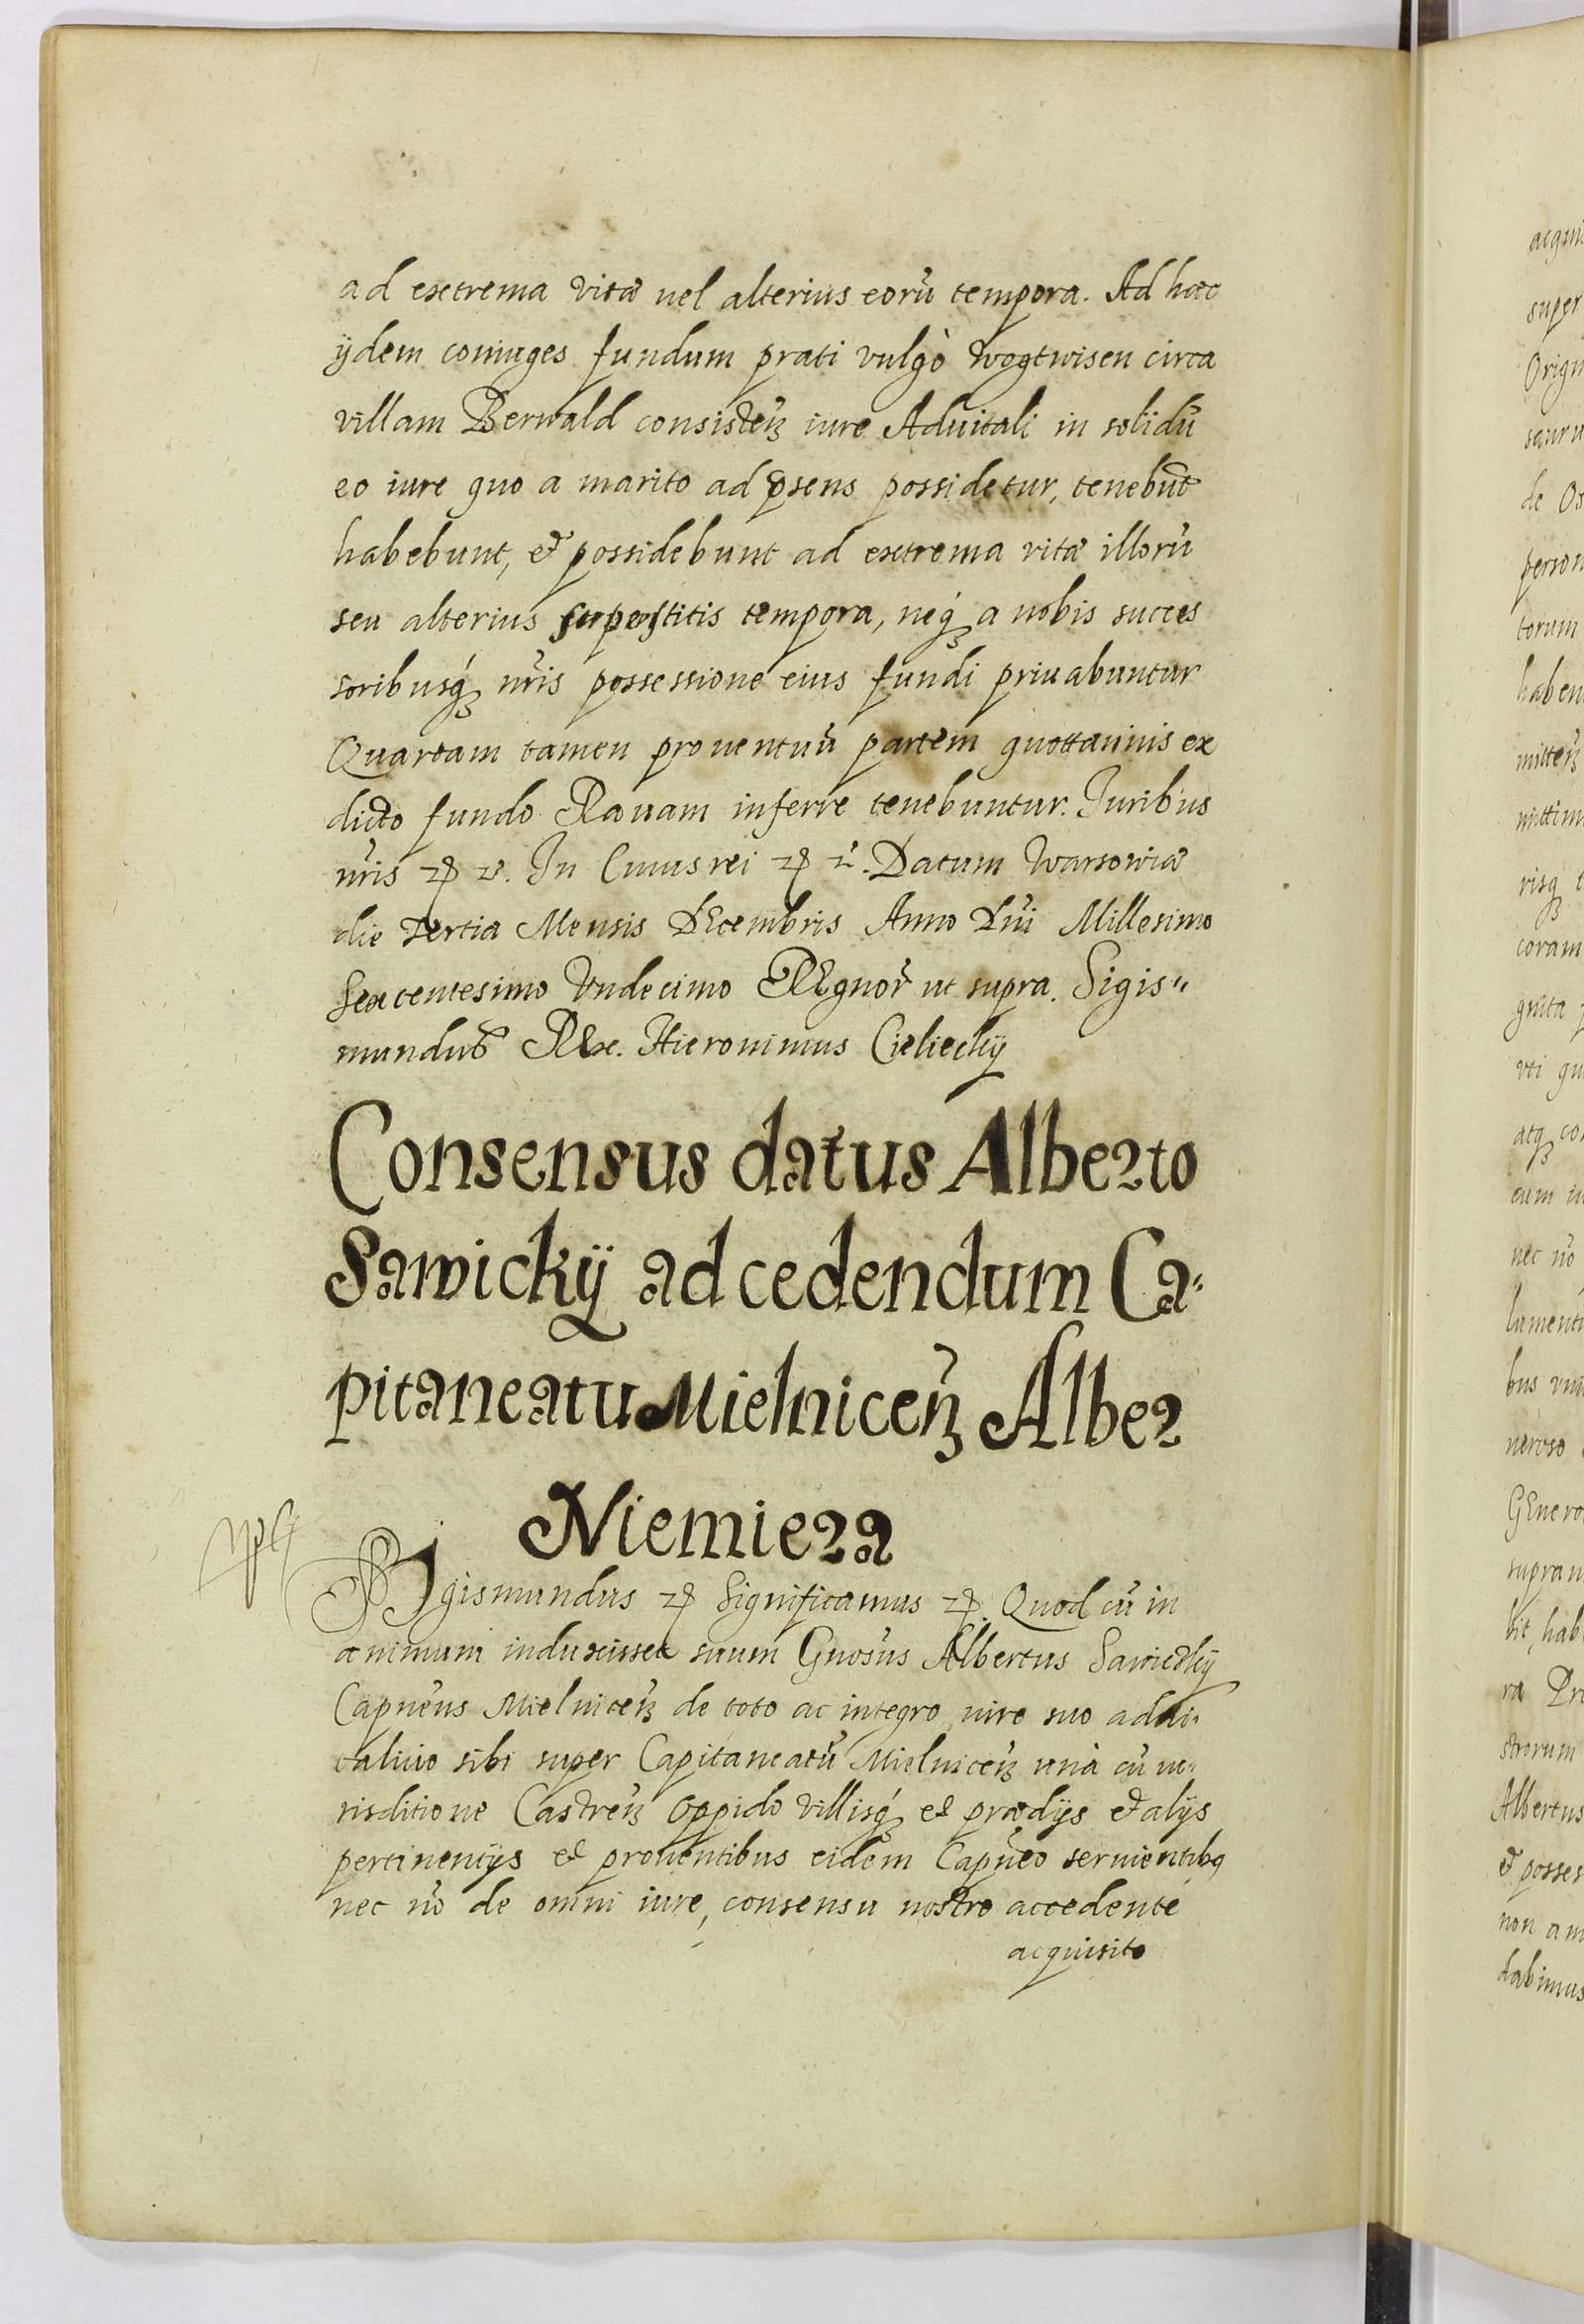 ad extrema vitæ vel alterius eorū tempora. Ad hæc
ijdem coniuges fundum prati vulgò Wogtwisen circa
villam Berwald consisteñ iure Aduitali in solidū
eo iure quo a marito ad p̄sens possidetur, tenebūt
habebunt, et possidebunt ad extrema vitæ illorū
seu alterius superstitis tempora, neq́ a nobis succes
soribusq́ nr̄is possessione eius fundi priuabuntur
Quartam tamen prouentuū partem quottannis ex
dicto fundo Rauam inferre tenebuntur. Juribus
nr̄is In Cuius rei Datum Warsowiæ
die Tertia Mensis DEcembris Anno Dn̄i Millesimo
Sexcentesimo Vndecimo REgnor̄ ut supra. Sigis„
mundus REx. Hieronimus Cieliecky
Consensus datus Alberto
Sawickÿ ad cedendum Ca„
pitaneatu Mielniceñ Alber
Niemiera
SIgismundus Significamus Quod cū in
animum induxisset suum Gn̄osus Albertus Sawickÿ
Capn̄eus Mielniceñ de toto ac integro iure suo adui„
talitio sibi super Capitaneatū Mielniceñ unà cū iu„
risditione Castreñ Oppido Villisq́ et prædijs et alijs
pertinentijs et prouentibus eidem Capn̄eo seruientibq
nec nō de omni iure, consensu nostro accedente
acquisito
acqui
super
Orig
de Os
person
torum
haben
risq
coram
vti qu
atq co
cum in
nec nō
bus
neroso
GEnero
supra
bit, hab
ra Pr
strorum
Albertus
et posses
non am
dabimus